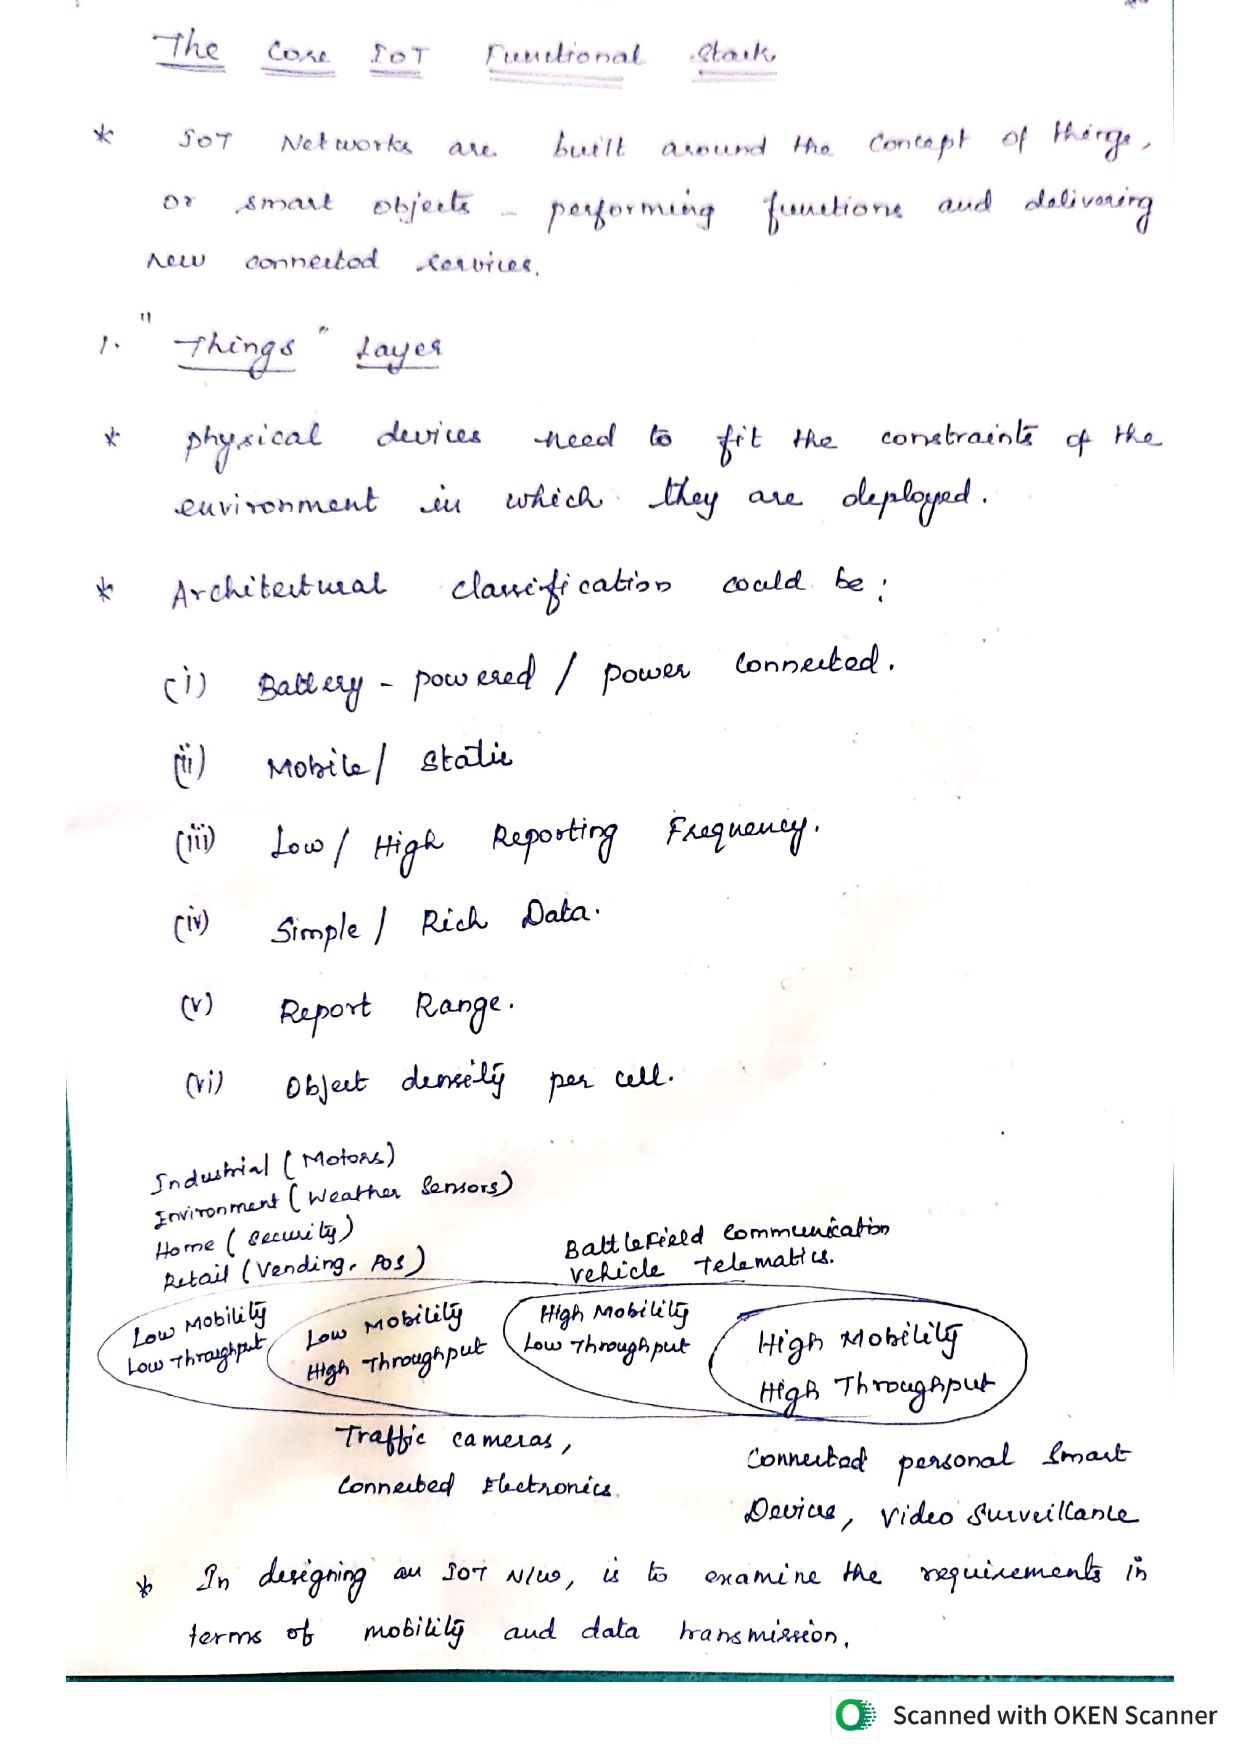 The Core IoT Functional Stack
* IoT Networks are built around the concept of things,
or smart objects - performing functions and delivering
new connected services.
1. "Things" Layer
* physical devices need to fit the constraints of the
environment in which they are deployed.
* Architectural classification could be:
(i) Battery - powered / power connected.
(ii) Mobile / Static
(iii) Low / High Reporting Frequency.
(iv) Simple / Rich Data.
(v) Report Range.
(vi) Object density per cell.
Industrial (Motors)
Environment (Weather Sensors)
Home (Security)
Retail (Vending, POS)
Battlefield Communication
Vehicle Telematics.
Low Mobility
Low Throughput
Low Mobility
High Throughput
High Mobility
Low Throughput
High Mobility
High Throughput
Traffic cameras,
Connected Electronics.
Connected personal Smart
Devices, Video Surveillance
* In designing an IoT N/w, is to examine the requirements in
terms of mobility and data transmission.
Scanned with OKEN Scanner